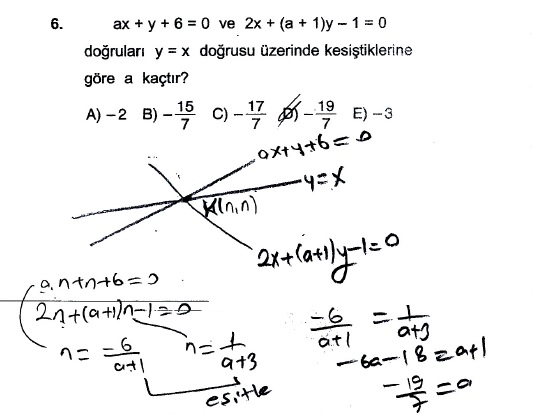 6. ax + y + 6 = 0 ve 2x + (a + 1)y – 1 = 0
doğruları y = x doğrusu üzerinde kesiştiklerine
göre a kaçtır?
A) –2 B) –15/7 C) –17/7 D) –19/7 E) –3
ax+y+6=0
y=x
K(n,n)
2x+(a+1)y-1=0
a.n+n+6=0
2n+(a+1)n-1=0
n = -6/(a+1) n = 1/(a+3)
esitle
-6/(a+1) = 1/(a+3)
-6a-18=a+1
-19/7 = a